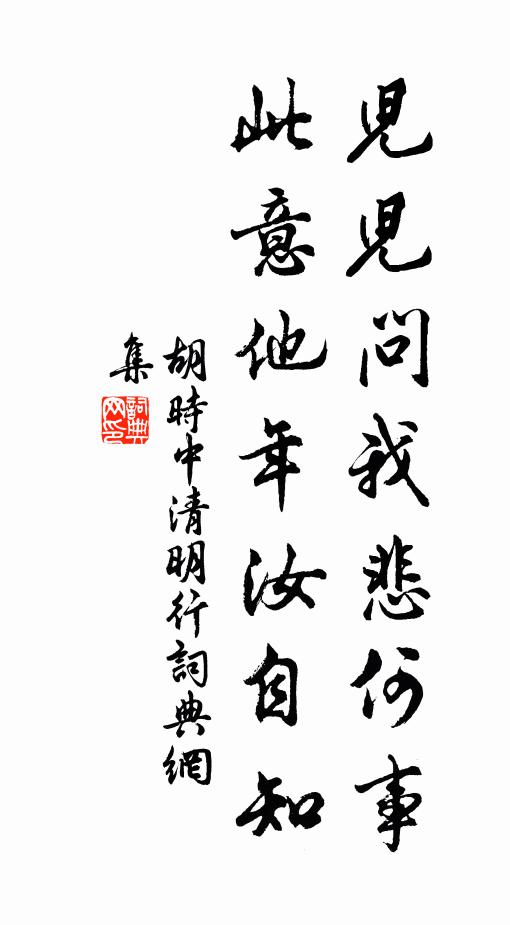 兒兒問我悲何事
此意他年汝自知
胡時中清明行詞典網
集
詞典網印